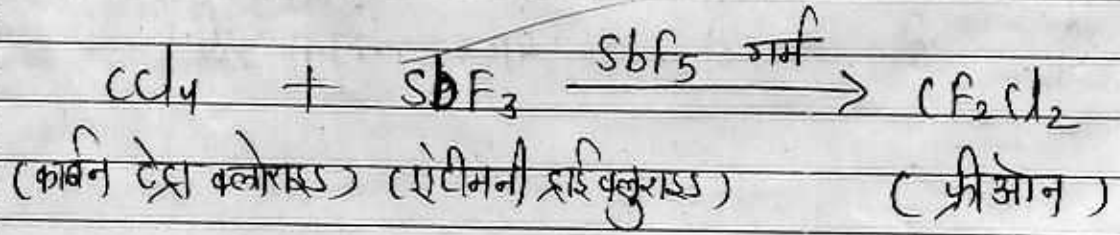 CCl4 + SbF3 SbF5 गर्म → CF2Cl2
(कार्बन टेट्रा क्लोराइड) (ऐंटीमनी ट्राई फ्लुराइड) (फ्रीऑन)